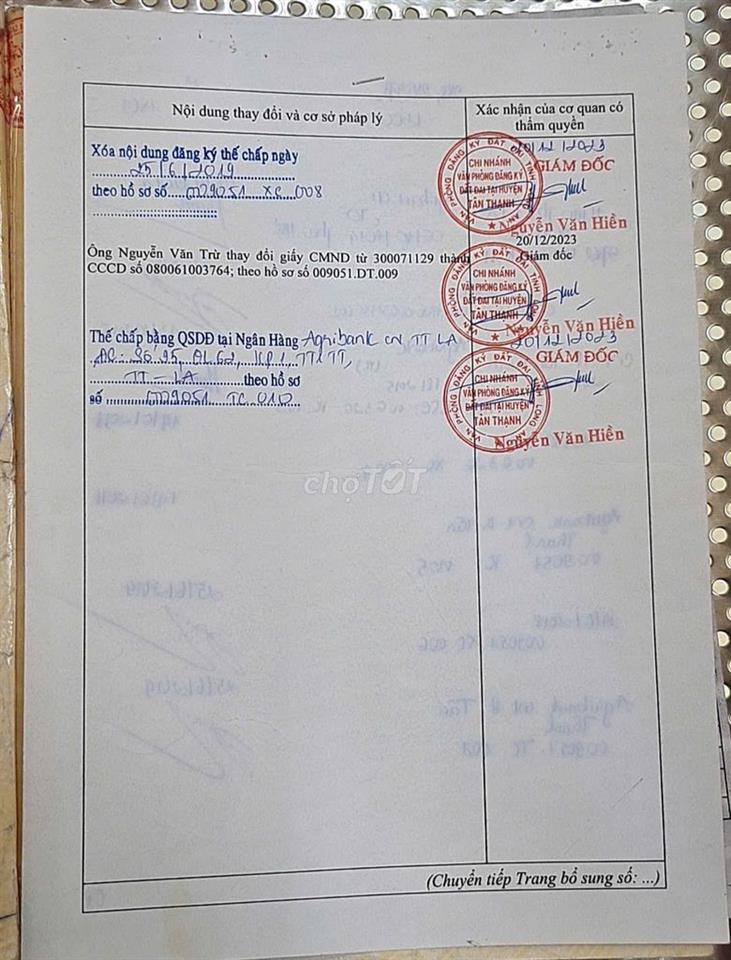 Nội dung thay đổi và cơ sở pháp lý
Xác nhận của cơ quan có
thẩm quyền
Xóa nội dung đăng ký thế chấp ngày
25/6/2019
theo hồ sơ số 009051 XC 008
20/12/2023
GIÁM ĐỐC
VĂN PHÒNG ĐĂNG KÝ ĐẤT ĐAI TỈNH LONG AN
CHI NHÁNH
VĂN PHÒNG ĐĂNG KÝ
ĐẤT ĐAI TẠI HUYỆN
TÂN THẠNH
Nguyễn Văn Hiền
Ông Nguyễn Văn Trừ thay đổi giấy CMND từ 300071129 thành
CCCD số 080061003764; theo hồ sơ số 009051.DT.009
20/12/2023
Giám đốc
VĂN PHÒNG ĐĂNG KÝ ĐẤT ĐAI TỈNH LONG AN
CHI NHÁNH
VĂN PHÒNG ĐĂNG KÝ
ĐẤT ĐAI TẠI HUYỆN
TÂN THẠNH
Nguyễn Văn Hiền
Thế chấp bằng QSDĐ tại Ngân Hàng Agribank CN TT LA
TT - LA theo hồ sơ
số 009051 TC 010
20/12/2023
GIÁM ĐỐC
VĂN PHÒNG ĐĂNG KÝ ĐẤT ĐAI TỈNH LONG AN
CHI NHÁNH
VĂN PHÒNG ĐĂNG KÝ
ĐẤT ĐAI TẠI HUYỆN
TÂN THẠNH
Nguyễn Văn Hiền
chợTỐT
(Chuyển tiếp Trang bổ sung số: ...)